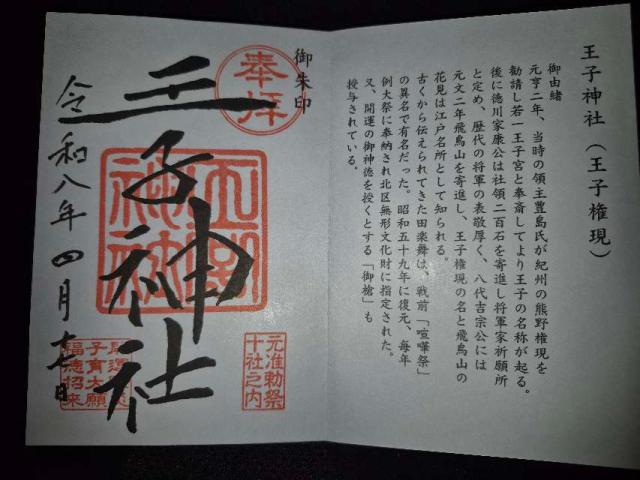 王子神社（王子権現）
御由緒
元亨二年、当時の領主豊島氏が紀州の熊野権現を
勧請し若一王子宮と奉斎してより王子の名称が起る。
後に徳川家康公は社領二百石を寄進し将軍家祈願所
と定め、歴代の将軍の表敬厚く、八代吉宗公には
元文二年飛鳥山を寄進し、王子権現の名と飛鳥山の
花見は江戸名所として知られる。
古くから伝えられてきた田楽舞は、戦前「喧嘩祭」
の異名で有名だった。昭和五十九年に復元、毎年
例大祭に奉納され北区無形文化財に指定された。
又、開運の御神徳を授くとする「御槍」も
授与されている。
御朱印
奉拝
王子神社
王子神社
元准勅祭
十社之内
令和八年四月
子育大願
福徳招来